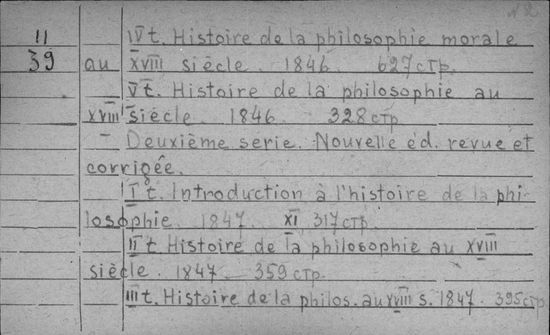 N2
II IV t. Histoire de la philosophie morale
39 au XVIII siècle. 1846. 627 стр.
V t. Histoire de la philosophie au
XVIII siècle. 1846. 328 стр
– Deuxième serie. Nouvelle éd. revue et
corrigée.
I t. Introduction à l'histoire de la phi-
losophie. 1847. XI, 317 стр.
II t. Histoire de la philosophie au XVIII
siècle. 1847. 359 стр.
III t. Histoire de la philos. au XVIII s. 1847. 395 стр